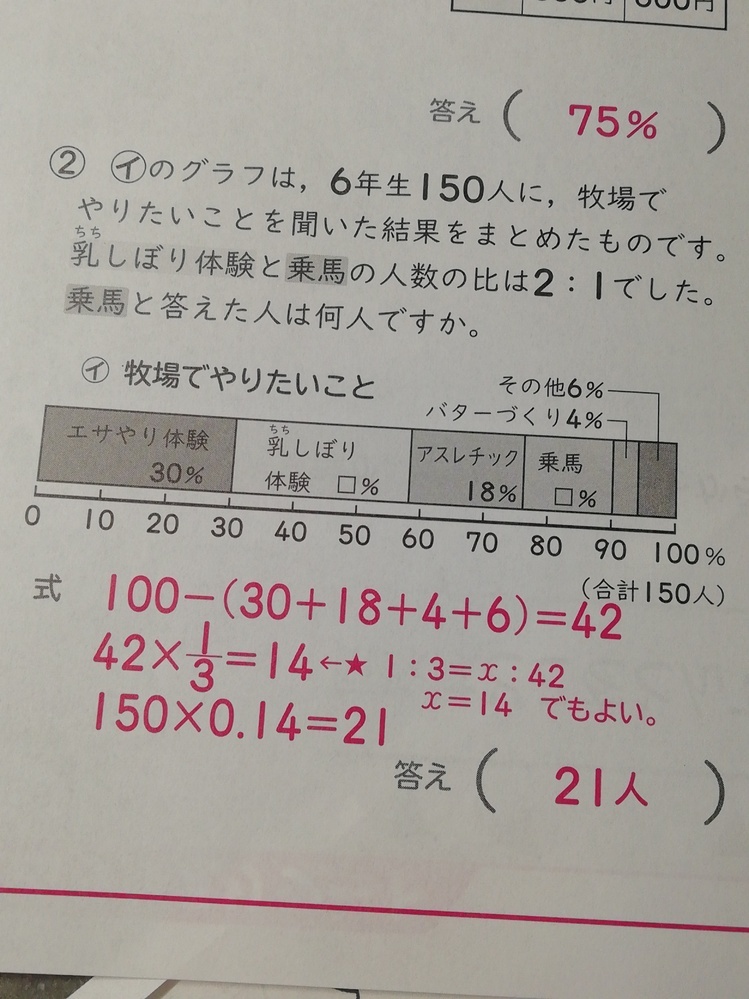 答え ( 75% )
② ㋑のグラフは，6年生150人に，牧場で
やりたいことを聞いた結果をまとめたものです。
ちち
乳しぼり体験と乗馬の人数の比は2：1でした。
乗馬と答えた人は何人ですか。
㋑ 牧場でやりたいこと
その他6%
バターづくり4%
エサやり体験
30%
ちち
乳しぼり
体験 □%
アスレチック
18%
乗馬
□%
0 10 20 30 40 50 60 70 80 90 100%
(合計150人)
式 100−(30+18+4+6)=42
42×1/3=14←★ 1：3=x：42
x=14 でもよい。
150×0.14=21
答え ( 21人 )